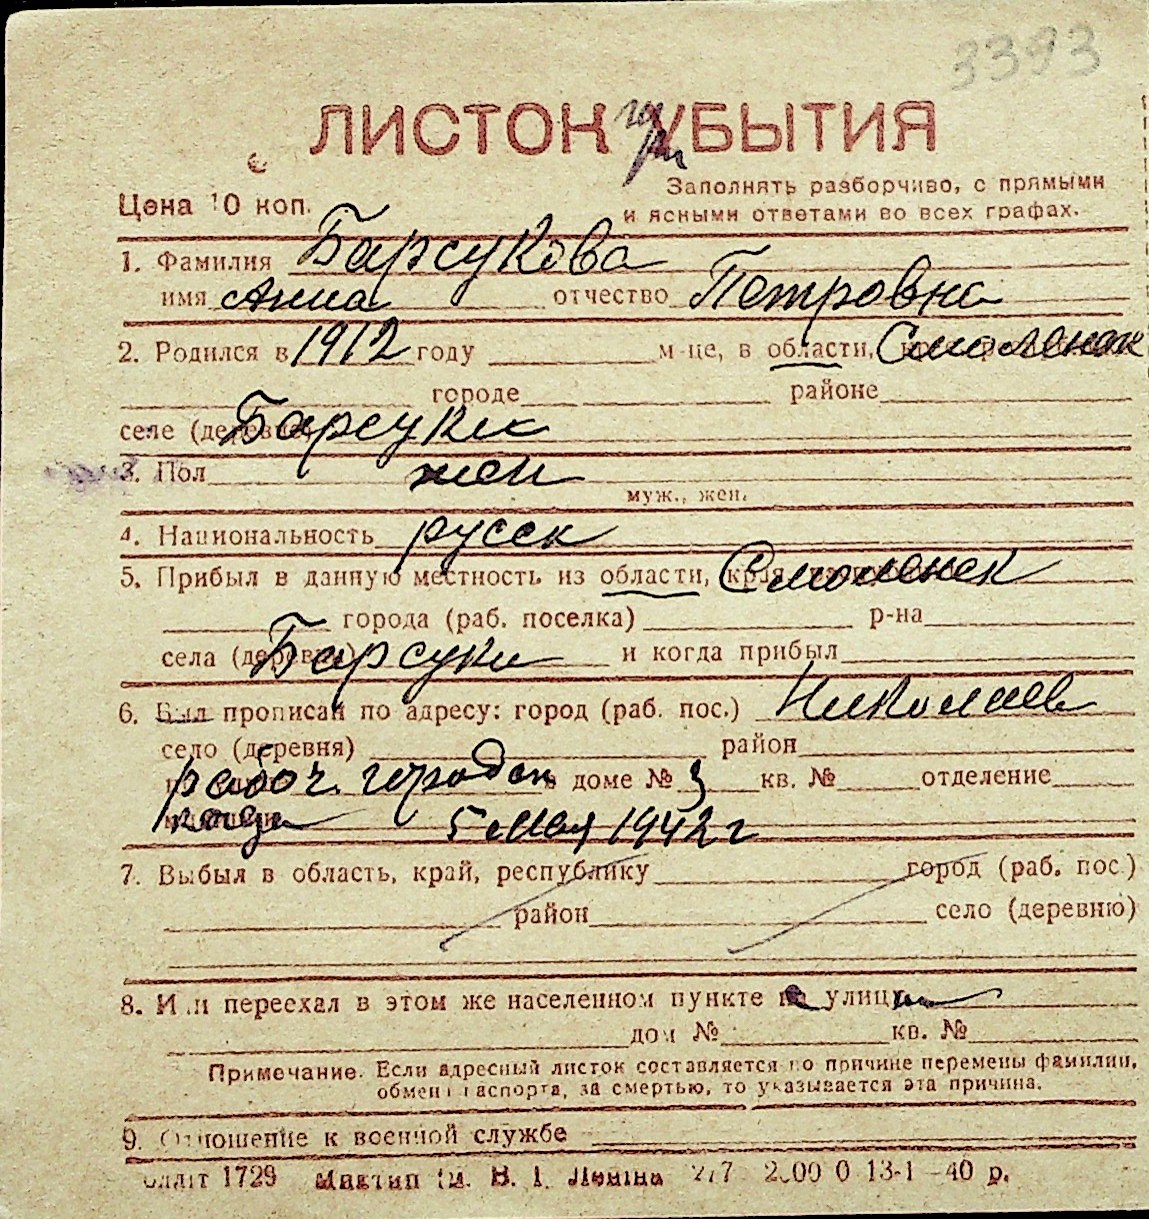 3393
ЛИСТОК УБЫТИЯ
Цена 10 коп.
Заполнять разборчиво, с прямыми
и ясными ответами во всех графах.
1. Фамилия Барсукова
имя Анна отчество Петровна
2. Родился в 1912 году м-це, в области, Смоленск
городе районе
селе (деревне) Барсуки
3. Пол жен
муж., жен.
4. Национальность русск
5. Прибыл в данную местность из области, края, Смоленск
города (раб. поселка) р-на
села (деревни) Барсуки и когда прибыл
6. Был прописан по адресу: город (раб. пос.) Николаев
село (деревня) район
рабоч. городок в доме № 3 кв. № отделение
5 мая 1942 г
7. Выбыл в область, край, республику город (раб. пос.)
район село (деревню)
8. Или переехал в этом же населенном пункте на улицу
дом № кв. №
Примечание. Если адресный листок составляется по причине перемены фамилии,
обмена паспорта, за смертью, то указывается эта причина.
9. Отношение к военной службе
1729 В. І. Леніна 13-1-40 р.